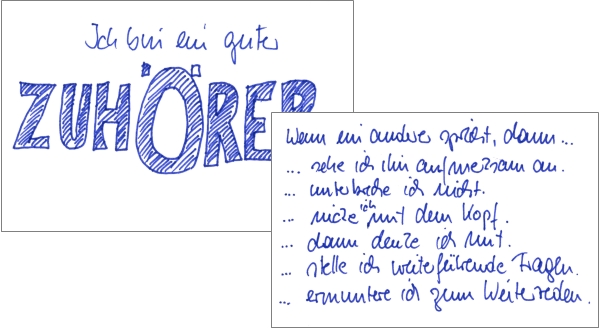 Ich bin ein guter
ZUHÖRER
Wenn ein anderer spricht, dann...
... sehe ich ihn aufmerksam an.
... unterbreche ich nicht.
... nicke ich mit dem Kopf.
... dann denke ich mit.
... stelle ich weiterführende Fragen.
... ermuntere ich zum Weiterreden.